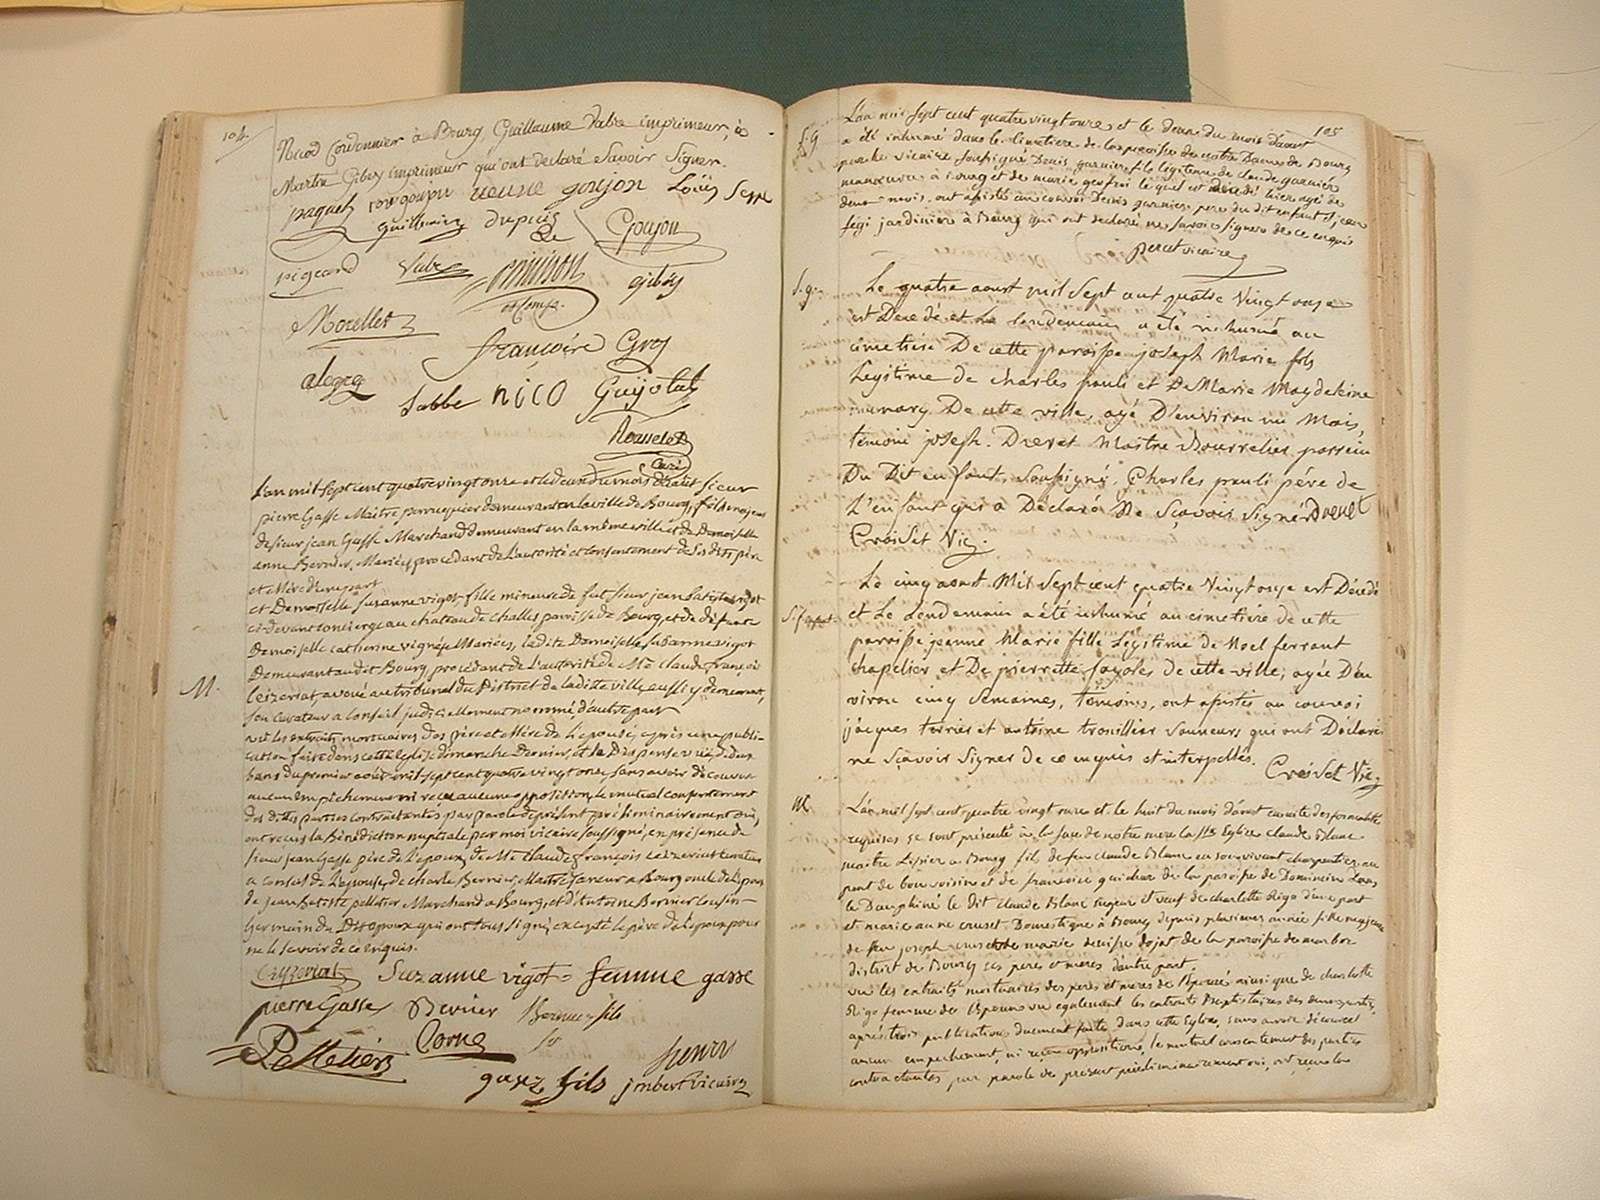 104
Nicod Cordonnier à Bourg Guillaume Vabre imprimeur, &
Martin Giboz imprimeur qui ont declaré Savoir Signer.
paquet goujon veuve goujon Loüis
guillemin dupuis Goujon
pigeard Vabre
Morellet
françoise Gros
Labbe nico Guyotat
Rousselet
Curé
L'an mil sept cent quatre vingt onze et le deux du mois d'aout sieur
pierre Gasse Maitre perruquier demeurant en la ville de Bourg, fils majeur
de sieur jean Gasse Marchand demeurant en la même ville et de Demoiselle
anne Bernier, Mariés, procedant de l'autorité et consentement de ses dits père
et Mère d'une part
et Demoiselle Suzanne vigot, fille mineure de fut sieur jean Batiste vigot
ci-devant concierge au chateau de Challes parroisse de Bourg et de défunte
Demoiselle catherine vigné, Mariées, ladite Demoiselle Susanne vigot
Demeurant audit Bourg procédant de l'autorité de Me Claude françois
Ceizeriat, avoué au tribunal du District de ladite ville, aussi y demeurant,
M.
son Curateur a Conseil judiciellement nommé, d'autre part
vu les extraits mortuaires des père et Mère de l'épouse, après une publi-
cation faite dans cette Eglise dimanche Dernier, et la Dispense de deux
bans du premier août mil sept cent quatre vingt onze, sans avoir découvert
aucun empêchement ni reçu aucune opposition, le mutuel consentement
des dittes parties contractantes par parole de présent préliminairement oui,
ont reçus la Bénédiction nuptiale par moi vicaire soussigné, en présence de
sieur jean Gasse père de l'epoux, de Me Claude françois Ceizeriat curateur
a conseil de l'épouse, de charle Bernier, Maitre a Bourg oncle de l'epoux
de jean Batiste pelletier Marchand a Bourg, et d'Antoine Bernier cousin-
germain du Dit époux qui ont tous signé, excepté le père de l'epoux pour
ne le savoir de ce enquis.
Ceyzeriat Suzanne vigot = femme gasse
pierre Gasse Bernier Bernier fils
Pelletier Corne
fils jmbert vicaire
105
L'an mil sept cent quatre vingt onze et le deux du mois d'aout
S. g.
a été inhumé dans le Cimetiere de la paroisse de notre Dame de Bourg
par le vicaire soussigné Denis garnier fils légitime de claude garnier
manœuvre à Bourg et de marie geofroi le quel est décédé hier agé de
deux mois, ont assisté au convoi Denis garnier pere du dit enfant et jean
jardinier à Bourg qui ont declaré ne savoir signer de ce enquis
peret vicaire
S. g.
Le quatre aoust mil sept cent quatre vingt onze
est Decedé et Le lendemain a été inhumé au
cimetière De cette paroisse joseph Marie fils
Legitime de Charles pauli et De Marie Magdeleine
De cette ville, agé D'environ un Mois,
temoins joseph Drevet Maitre Bourrelier parrein
Du Dit enfant, Soussigné, Charles pauli père de
L'enfant qui a Declaré Ne Sçavoir signé. Drevet
Croiset Vic.
Le cinq aoust Mil sept cent quatre Vingt onze est Décédé
et Le Lendemain a été inhumé au cimetière de cette
paroisse jeanne Marie fille Légitime de Noel ferrant
chapelier et De pierrette fayoles de cette ville, agée D'en
viron cinq Semaines, témoins, ont assistés au convoi
jacques terrier et antoine trouillier Sonneurs qui ont Déclarés
ne Sçavoir Signer de ce enquis et interpellés. Croiset Vic.
M
L'an mil sept cent quatre vingt onze et le huit du mois d'aout ensuite des formalités
requises se sont présenté à la face de notre mere la Ste Eglise claude Blanc
maitre à Bourg fils de feu claude Blanc en son vivant charpentier au
pont de bon voisin et de francoise guichar de la paroisse de Domissin dans
le Dauphiné le dit claude Blanc majeur et veuf de charlotte Rigo d'une part
et marie anne cruset Domestique à Bourg depuis plusieurs année fille majeure
de feu joseph cruset de marie denise dojat de la paroisse de marboz
district de Bourg ses peres et meres d'autre part.
vu les extraits mortuaires des peres et meres de l'Epouse ainsi que de charlotte
Rigo femme de l'Epoux vu egalement les extraits Baptistaires des deux parties,
après trois publications duement faite dans cette Eglise, sans avoir découvert
aucun empechement, ni reçu opposition, le mutuel consentement des parties
contractantes par parole de présent préliminairement oui, ont reçu la